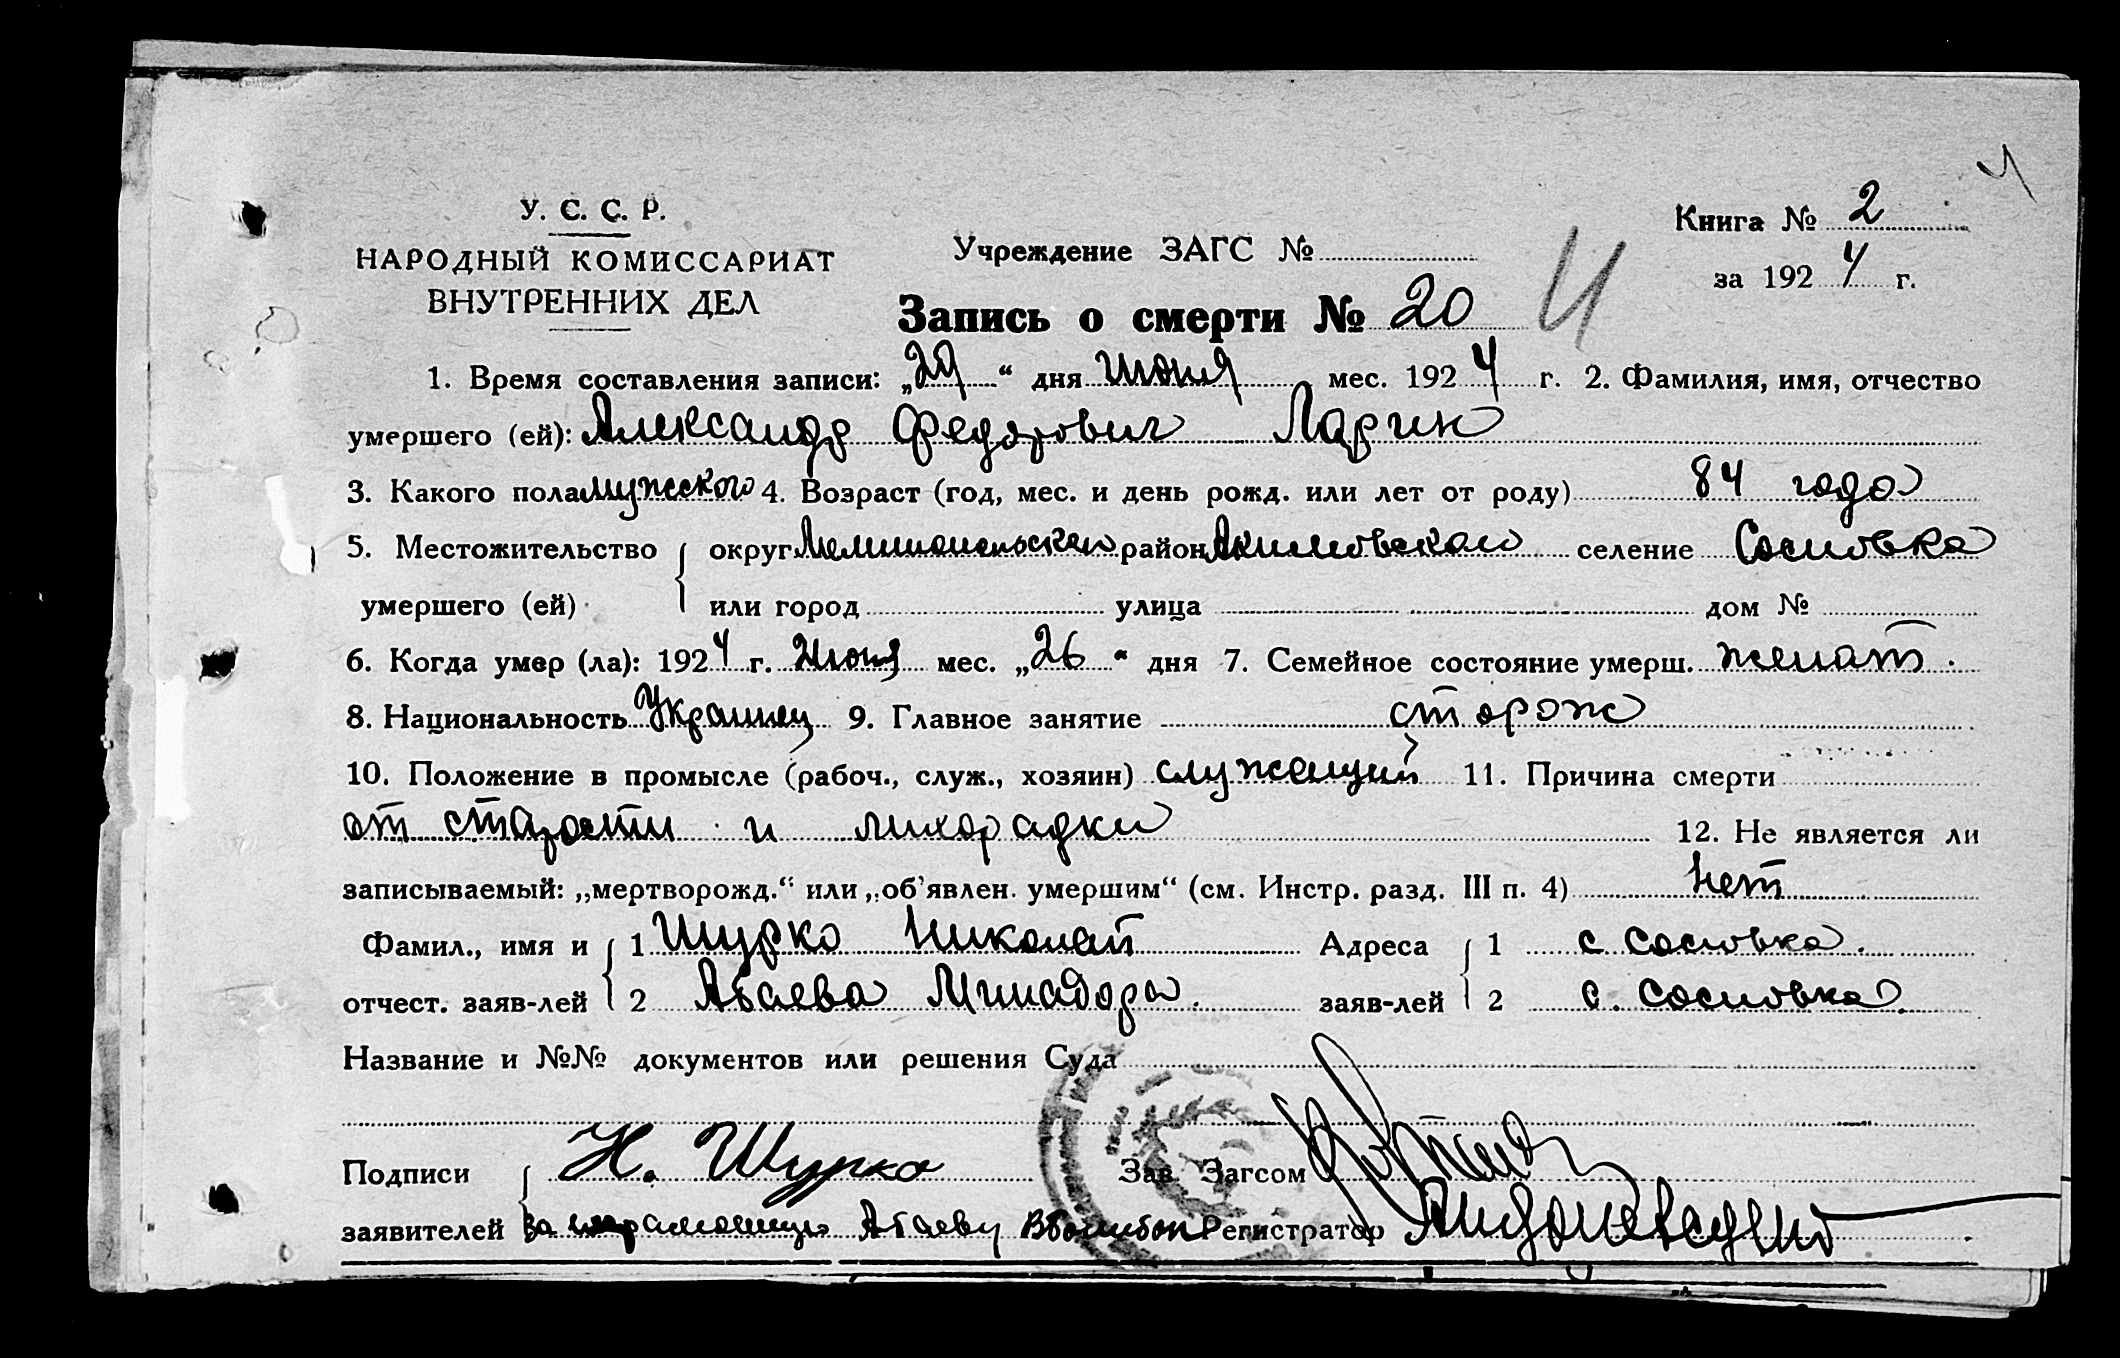 4
У. С. С. Р.
НАРОДНЫЙ КОМИССАРИАТ
ВНУТРЕННИХ ДЕЛ
Учреждение ЗАГС №
Книга № 2
за 192 4 г.
Запись о смерти № 20 4
1. Время составления записи: „29“ дня июня мес. 192 4 г. 2. Фамилия, имя, отчество
умершего (ей): Александр Федорович Ларин
3. Какого пола мужского 4. Возраст (год, мес. и день рожд. или лет от роду) 84 года
5. Местожительство округ Мелитопольского район Акимовского селение Сосновка
умершего (ей) или город улица дом №
6. Когда умер (ла): 192 4 г. Июня мес. „26“ дня 7. Семейное состояние умерш. женат.
8. Национальность Украинец 9. Главное занятие сторож
10. Положение в промысле (рабоч., служ., хозяин) служащий 11. Причина смерти
от старости и лихорадки 12. Не является ли
записываемый: „мертворожд.“ или „об'явлен. умершим“ (см. Инстр. разд. III п. 4) нет
Фамил., имя и 1 Шурко Николай Адреса 1 с Сосновка.
отчест. заяв-лей 2 Абаева Минадора. заяв-лей 2 с. Сосновка.
Название и №№ документов или решения Суда
Подписи Н. Шурко Зав. Загсом
заявителей За неграмотную Абаеву Регистратор